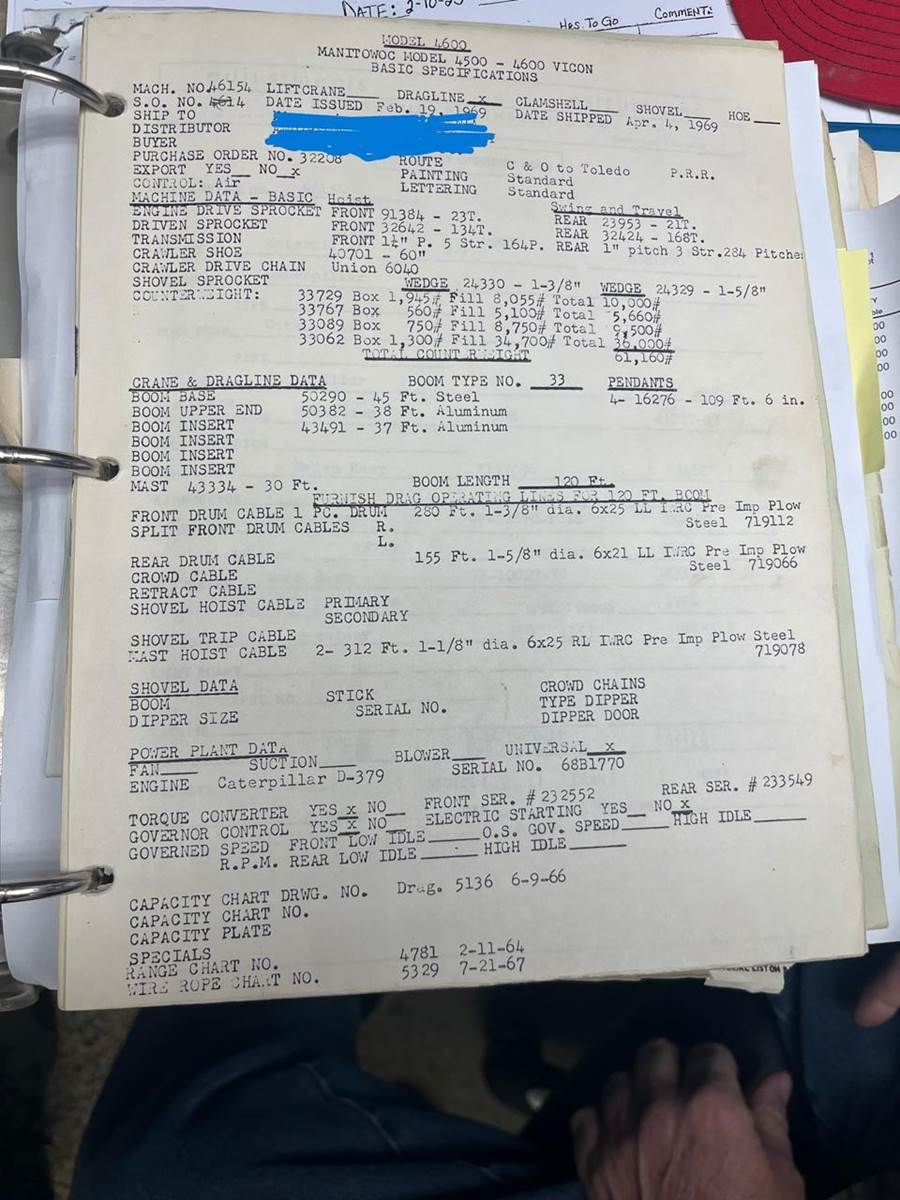 DATE: 2-10-25
HRS. TO GO COMMENT:
MODEL 4600
MANITOWOC MODEL 4500 - 4600 VICON
BASIC SPECIFICATIONS
MACH. NO. 46154 LIFTCRANE____ DRAGLINE _x_ CLAMSHELL____ SHOVEL____ HOE____
S.O. NO. 4614 DATE ISSUED Feb. 19, 1969 DATE SHIPPED Apr. 4, 1969
SHIP TO
DISTRIBUTOR
BUYER
PURCHASE ORDER NO. 32208 ROUTE C & O to Toledo P.R.R.
EXPORT YES__ NO _x_ PAINTING Standard
CONTROL: Air LETTERING Standard
MACHINE DATA - BASIC Hoist Swing and Travel
ENGINE DRIVE SPROCKET FRONT 91384 - 23T. REAR 23953 - 21T.
DRIVEN SPROCKET FRONT 32642 - 134T. REAR 32424 - 168T.
TRANSMISSION FRONT 1¼" P. 5 Str. 164P. REAR 1" pitch 3 Str. 284 Pitches
CRAWLER SHOE 40701 - 60"
CRAWLER DRIVE CHAIN Union 6040
SHOVEL SPROCKET WEDGE 24330 - 1-3/8" WEDGE 24329 - 1-5/8"
COUNTERWEIGHT: 33729 Box 1,945# Fill 8,055# Total 10,000#
33767 Box 560# Fill 5,100# Total 5,660#
33089 Box 750# Fill 8,750# Total 9,500#
33062 Box 1,300# Fill 34,700# Total 36,000#
TOTAL COUNTERWEIGHT 61,160#
CRANE & DRAGLINE DATA BOOM TYPE NO. 33 PENDANTS
BOOM BASE 50290 - 45 Ft. Steel 4- 16276 - 109 Ft. 6 in.
BOOM UPPER END 50382 - 38 Ft. Aluminum
BOOM INSERT 43491 - 37 Ft. Aluminum
BOOM INSERT
BOOM INSERT
BOOM INSERT
MAST 43334 - 30 Ft. BOOM LENGTH 120 Ft.
FURNISH DRAG OPERATING LINES FOR 120 FT. BOOM
FRONT DRUM CABLE 1 PC. DRUM 280 Ft. 1-3/8" dia. 6x25 LL IWRC Pre Imp Plow
SPLIT FRONT DRUM CABLES R. Steel 719112
L.
REAR DRUM CABLE 155 Ft. 1-5/8" dia. 6x21 LL IWRC Pre Imp Plow
CROWD CABLE Steel 719066
RETRACT CABLE
SHOVEL HOIST CABLE PRIMARY
SECONDARY
SHOVEL TRIP CABLE
MAST HOIST CABLE 2- 312 Ft. 1-1/8" dia. 6x25 RL IWRC Pre Imp Plow Steel
719078
SHOVEL DATA
BOOM STICK CROWD CHAINS
DIPPER SIZE SERIAL NO. TYPE DIPPER
DIPPER DOOR
POWER PLANT DATA
FAN____ SUCTION____ BLOWER____ UNIVERSAL _x_
ENGINE Caterpillar D-379 SERIAL NO. 68B1770
TORQUE CONVERTER YES x NO__ FRONT SER. # 232552 REAR SER. # 233549
GOVERNOR CONTROL YES x NO__ ELECTRIC STARTING YES__ NO x
GOVERNED SPEED FRONT LOW IDLE____ O.S. GOV. SPEED____ HIGH IDLE____
R.P.M. REAR LOW IDLE____ HIGH IDLE____
CAPACITY CHART DRWG. NO. Drag. 5136 6-9-66
CAPACITY CHART NO.
CAPACITY PLATE
SPECIALS
RANGE CHART NO. 4781 2-11-64
WIRE ROPE CHART NO. 5329 7-21-67